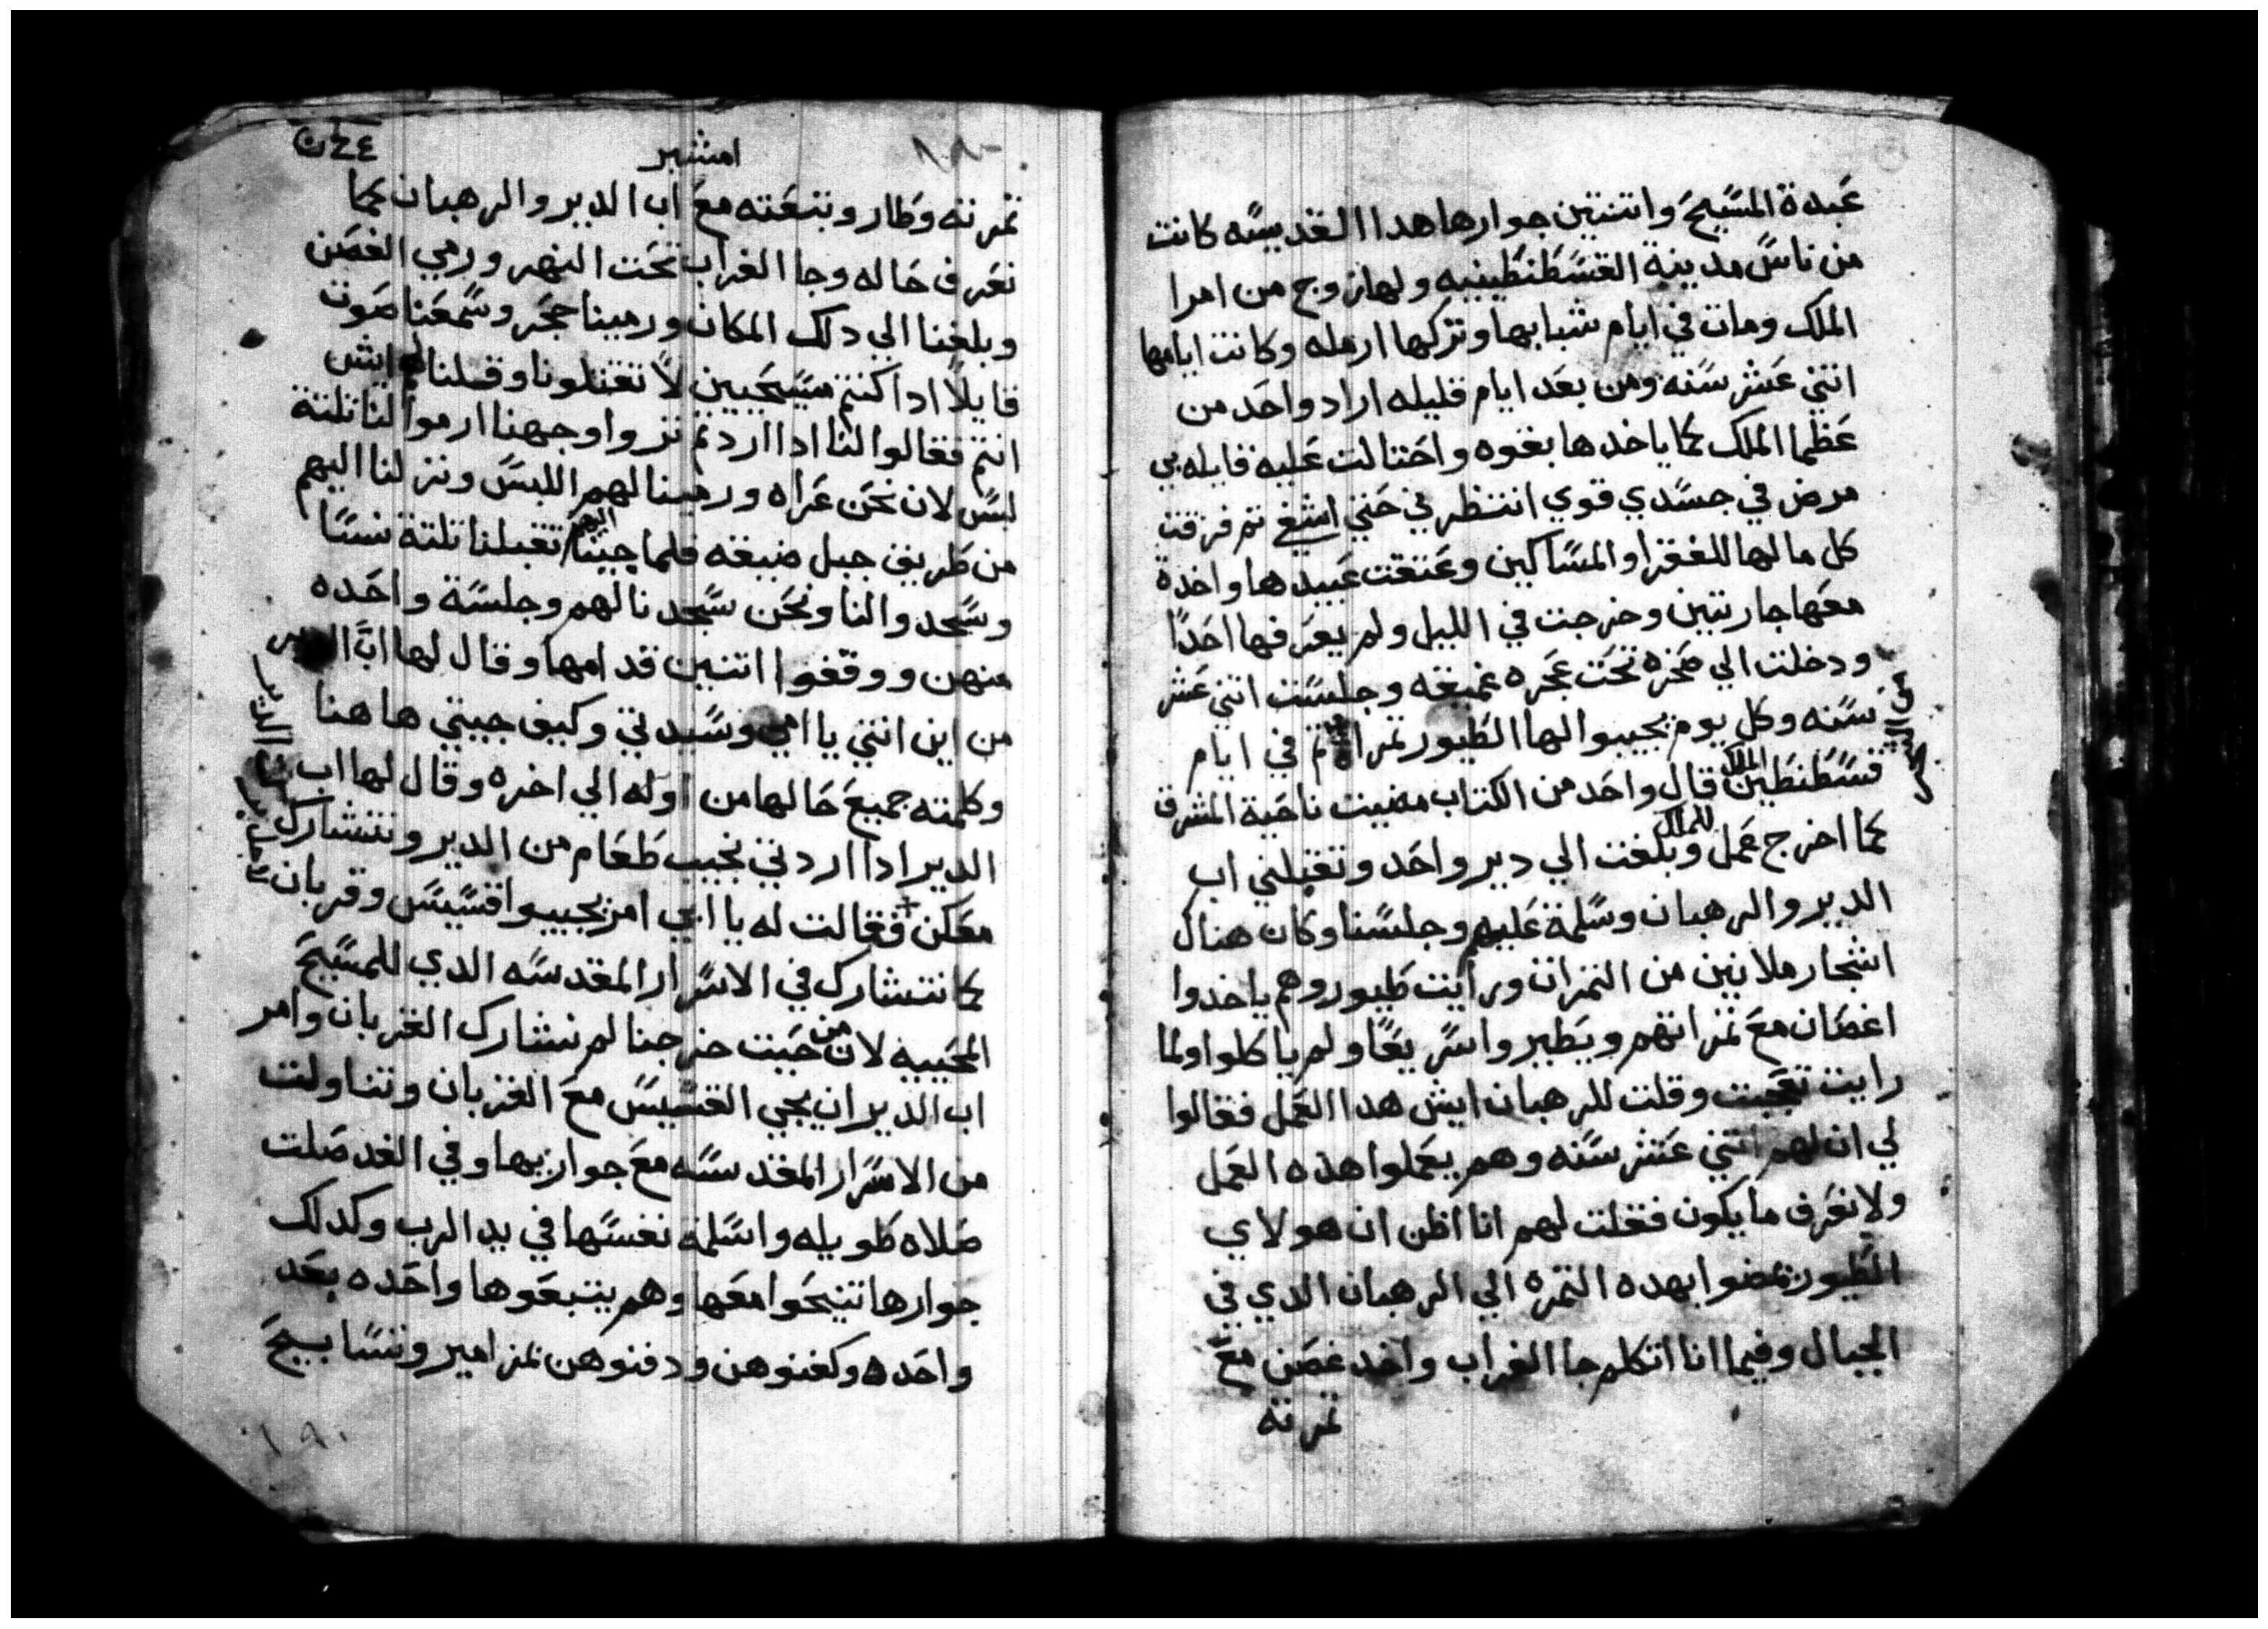 عبدة المسيح واتنتين جوارها هدا القديسه كانت
من ناس مدينة القسطنطينيه ولها زوج من امرا
الملك ومات في ايام شبابها وتركها ارمله وكانت ايامها
اتني عشر سنه ومن بعد ايام قليله اراد واحد من
عظما الملك كما ياخدها بقوه واحتالت عليه قايله بي
مرض في جسدي قوي انتظرني حتي اشفي تم فرقت
كل مالها للفقرا والمساكين وعتقت عبيدها واخدة
معها جاريتين وخرجت في الليل ولم يعرفها احدا
ودخلت الي صخره تحت عجره عميقه وجلست اتني عشر
سنه وكل يوم يجيبوا لها الطيور تمر في ايام
قسطنطين الملك قال واحد من الكتاب مضيت ناحية المشرق
كما اخرج عمل للملك وبلغت الي دير واحد وتقبلني اب
الدير والرهبان وسلمة عليهم وجلسنا وكان هناك
اشجار ملانين من التمرات ورايت طيور وهم ياخدوا
اغصان مع تمراتهم ويطيروا سريعا ولم ياكلوا ولما
رايت تعجبت وقلت للرهبان ايش هدا العمل فقالوا
لي ان لهم اتني عشر سنه وهم يعملوا هده العمل
ولا نعرف ما يكون فقلت لهم انا اظن ان هولاي
الطيور يمضوا بهده التمره الي الرهبان الدي في
الجبال وفيما انا اتكلم جا الغراب واخد غصن مع
تمرته
امشير
تمرته وطار وتبعته مع اب الدير والرهبان كما
نعرف حاله وجا الغراب تحت النهر ورمي الغصن
وبلغنا الي دلك المكان ورمينا حجر وسمعنا صوت
قايلا ادا كنتم مسيحيين لا تقتلونا وقلنا لهم ايش
انتم فقالوا لنا ادا اردتم تروا وجهنا ارموا لنا تلتة
لبس لان نحن عراه ورمينا لهم اللبس ونزلنا اليهم
من طريق جبل ضيقه فلما جينا اليهم تقبلنا تلتة نسا
وسجدوا لنا ونحن سجدنا لهم وجلسة واحده
منهن ووقفوا اتنين قدامها وقال لها اب الدير
من اين انتي يا امي وسيدتي وكيف جيتي هاهنا
وكلمته جميع حالها من اوله الي اخره وقال لها اب
الدير ادا اردتي نجيب طعام من الدير ونتشارك
معكن فقالت له يا ابي امر يجيبوا قسيس وقربان
كما نتشارك في الاسرار المقدسه الدي للمسيح
المحييه لان من حيت خرجنا لم نشارك القربان وامر
اب الدير ان يجي القسيس مع القربان وتناولت
من الاسرار المقدسه مع جواريها وفي الغد صلت
صلاه طويله واسلمة نفسها في يد الرب وكدلك
جوارها تنيحوا معها وهم يتبعوها واحده بعد
واحده وكفنوهن ودفنوهن بمزامير وتسابيح
١٩٠